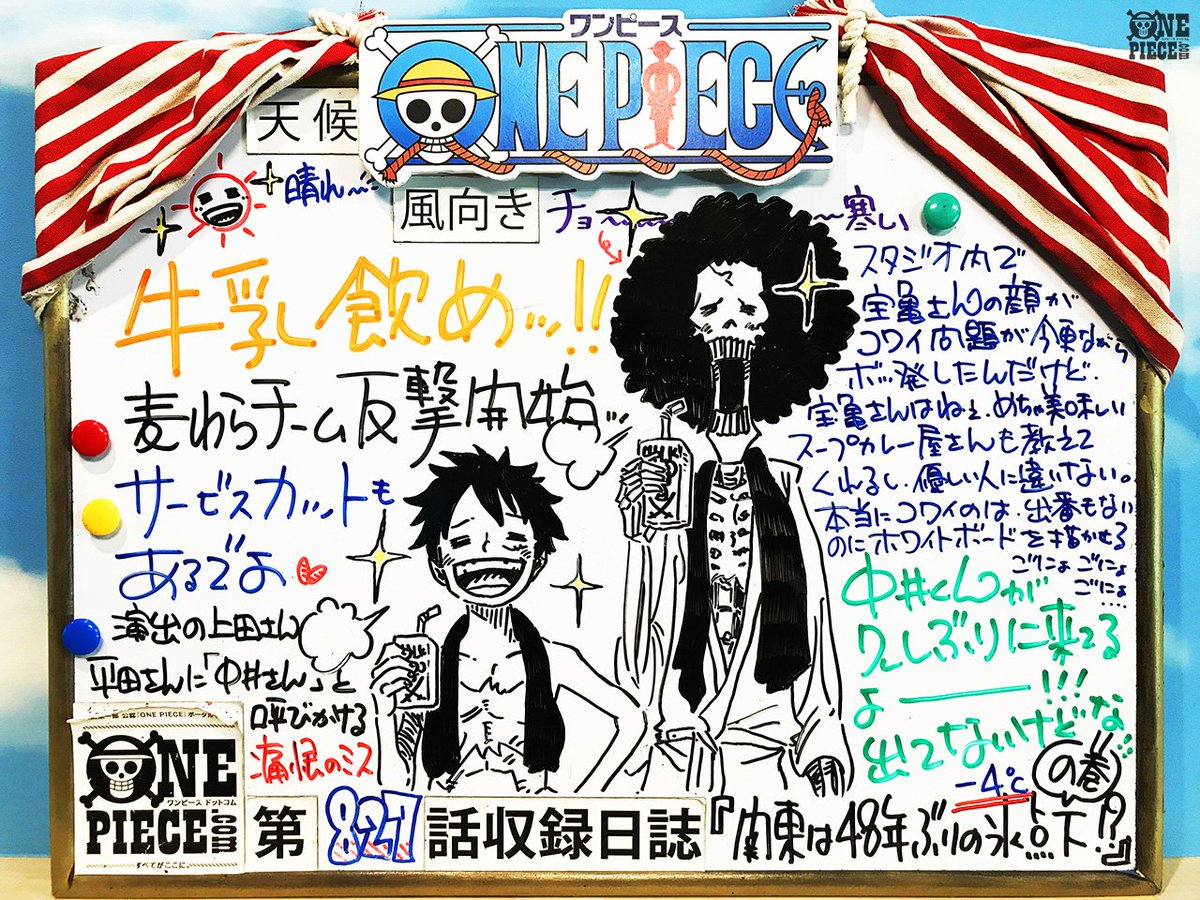 ワンピース
ONE PIECE
ONE PIECE.com
天候
晴れ〜
風向き
チョ〜〜寒い
牛乳飲めッ!!
麦わらチーム反撃開始ッ
サービスカットも
あるでよ
演出の上田さん
平田さんに「中井さん」と
呼びかける
痛恨のミス
スタジオ内で
宝亀さんの顔が
コワイ問題が今更ながら
ボッ発したんだけど、
宝亀さんはねぇ、めちゃ美味しい
スープカレー屋さんも教えて
くれるし、優しい人に違いない。
本当にコワイのは、出番もない
のにホワイトボードを描かせる
ごにょ ごにょ
ごにょ....
中井くんが
久しぶりに来てる
よ――!!!
出てないけどな
MILK
ONE
ワンピース ドットコム
PIECE.com
すべてがここに。
第827話収録日誌『関東は48年ぶりの氷点下!?』
-4℃
の巻